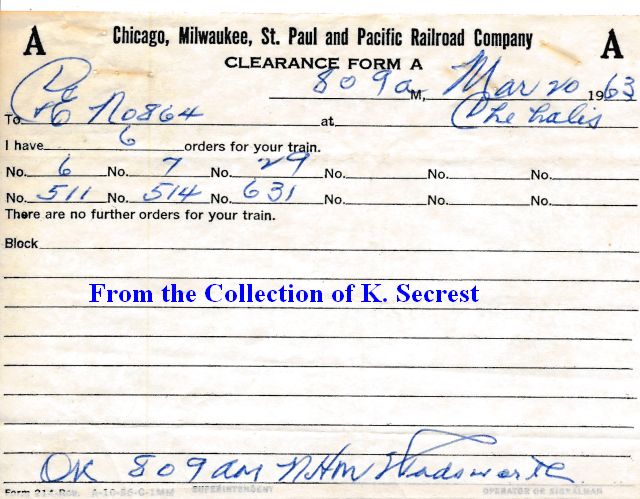 A Chicago, Milwaukee, St. Paul and Pacific Railroad Company A
CLEARANCE FORM A
809a M, Mar 20 1963
To No864 at Chehalis
I have 6 orders for your train.
No. 6 No. 7 No. 29 No. No. No.
No. 511 No. 514 No. 631 No. No. No.
There are no further orders for your train.
Block
From the Collection of K. Secrest
OK 809am NHM Wadsworth
Form 214 Rev. A-10-56-G-1MM SUPERINTENDENT OPERATOR OR SIGNALMAN